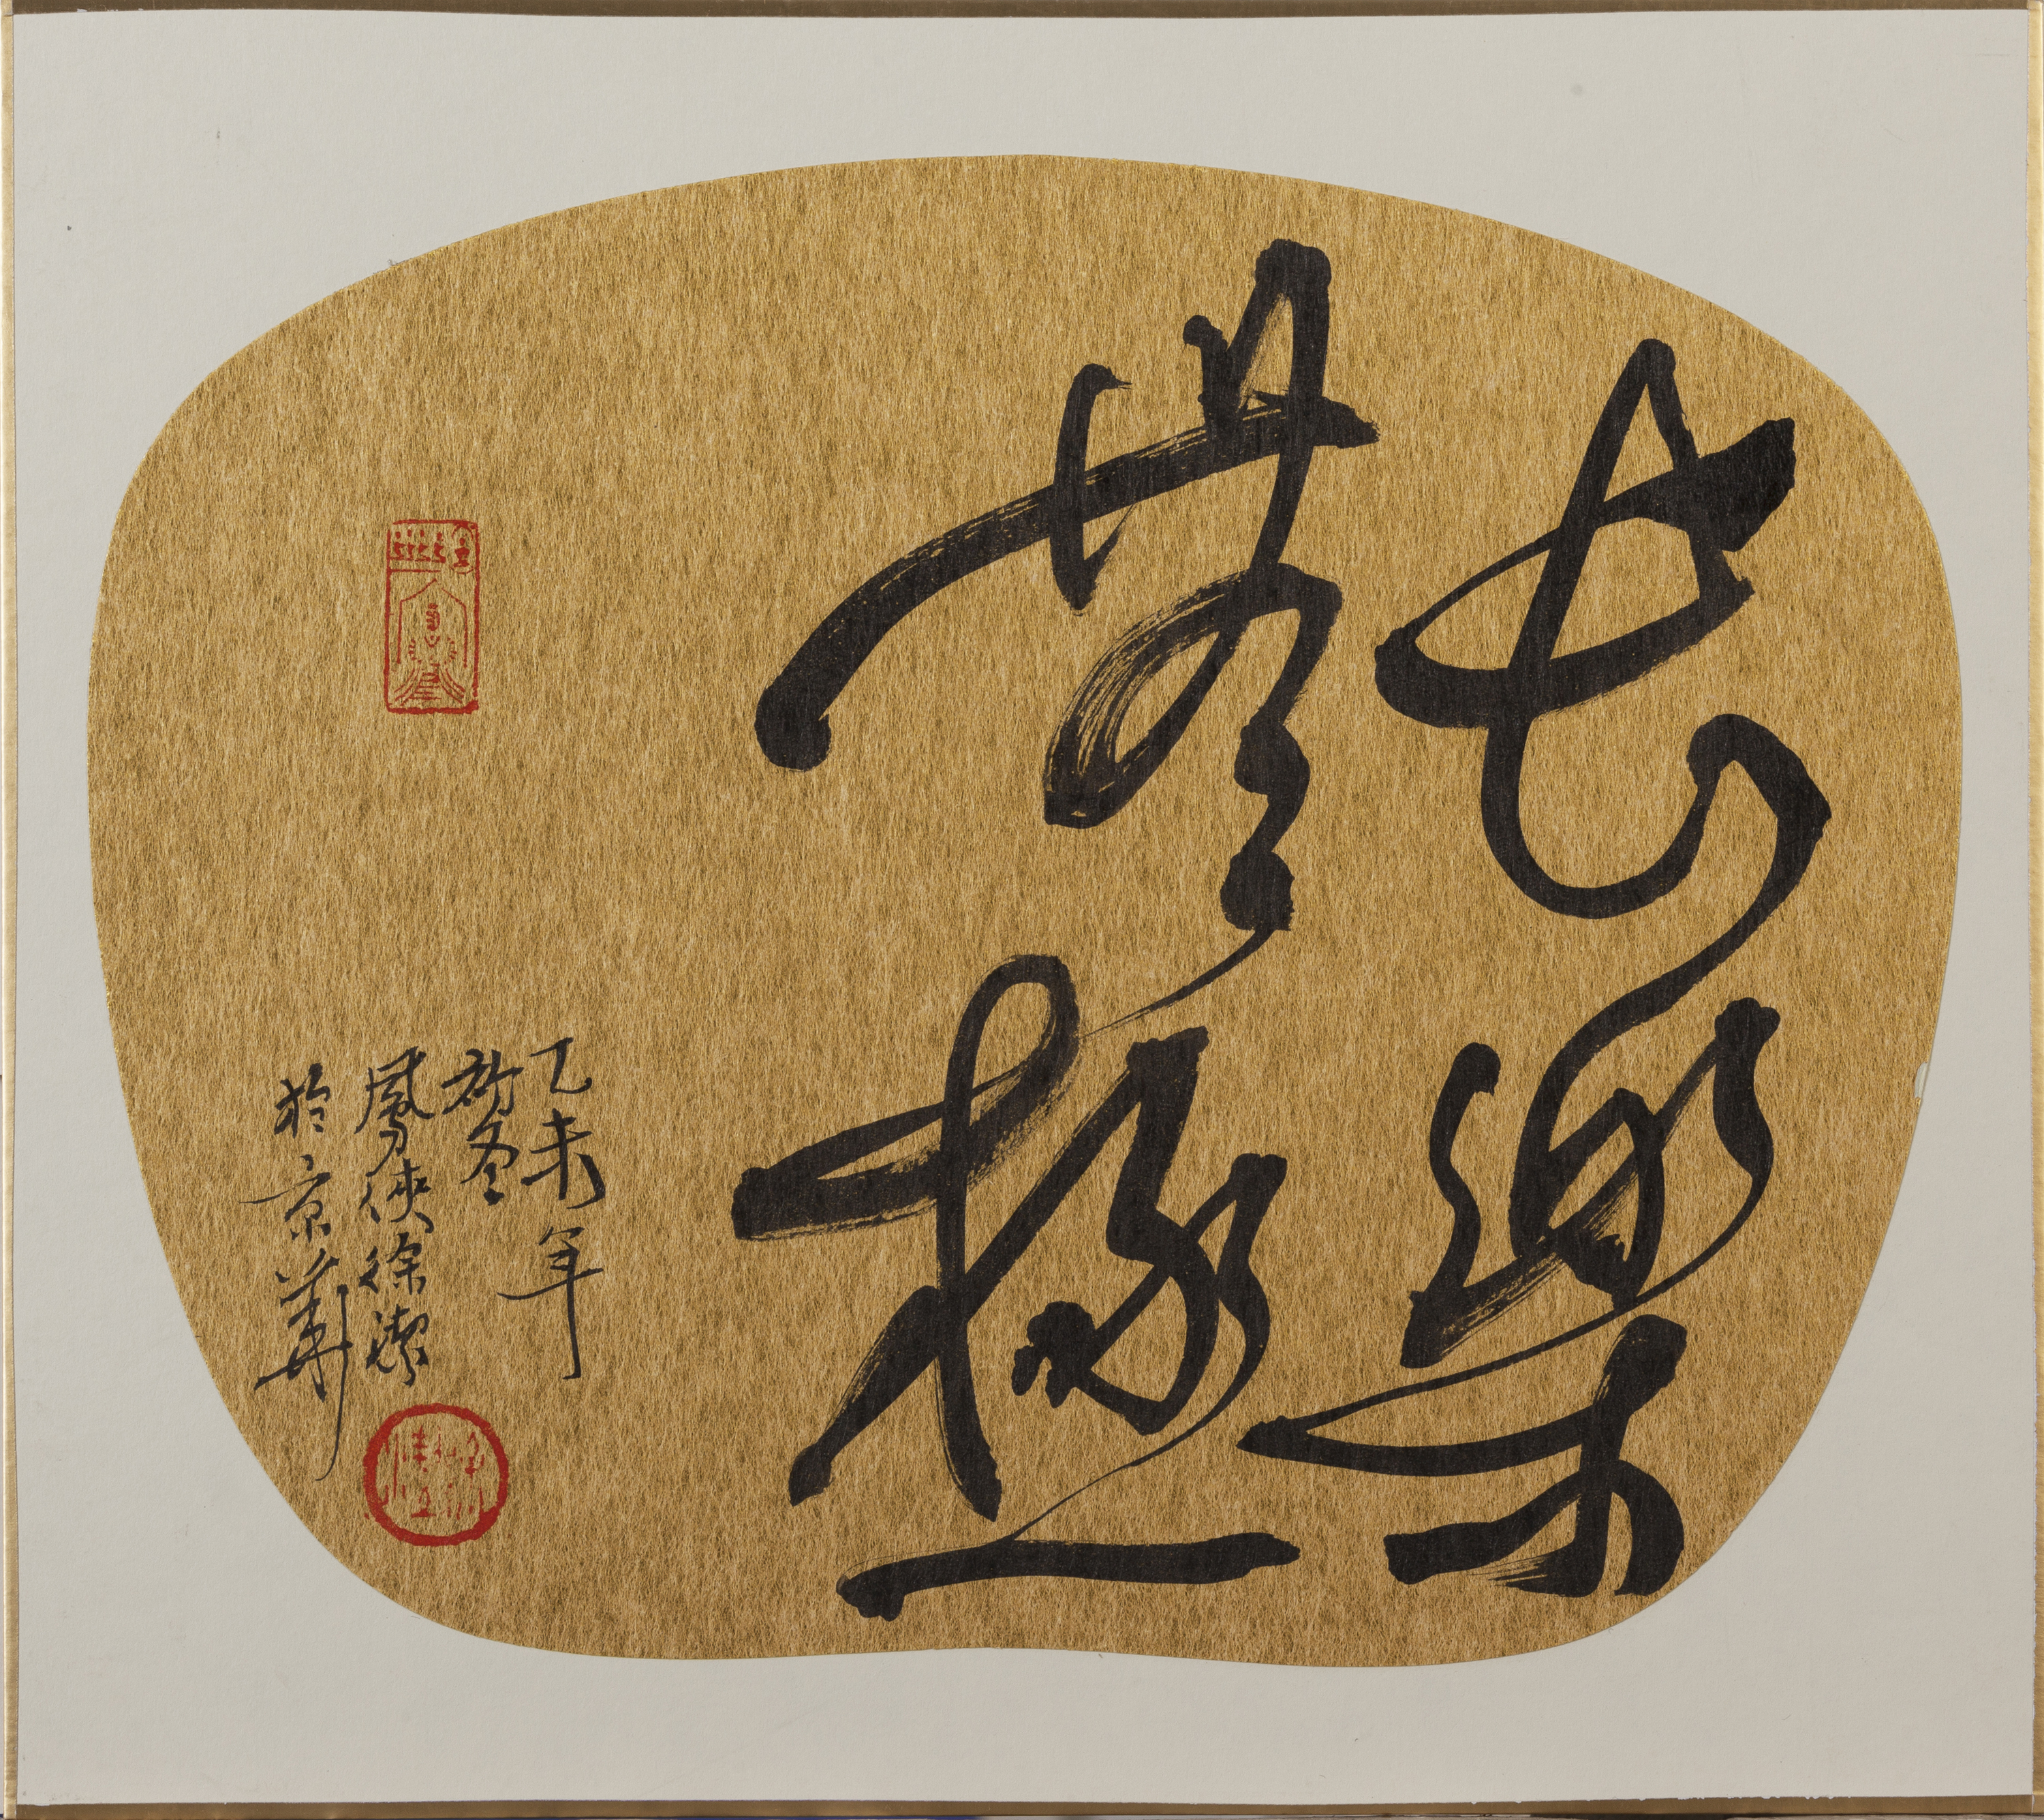 長樂
無極
乙未年
初冬
風刀俠徐潔
於京華